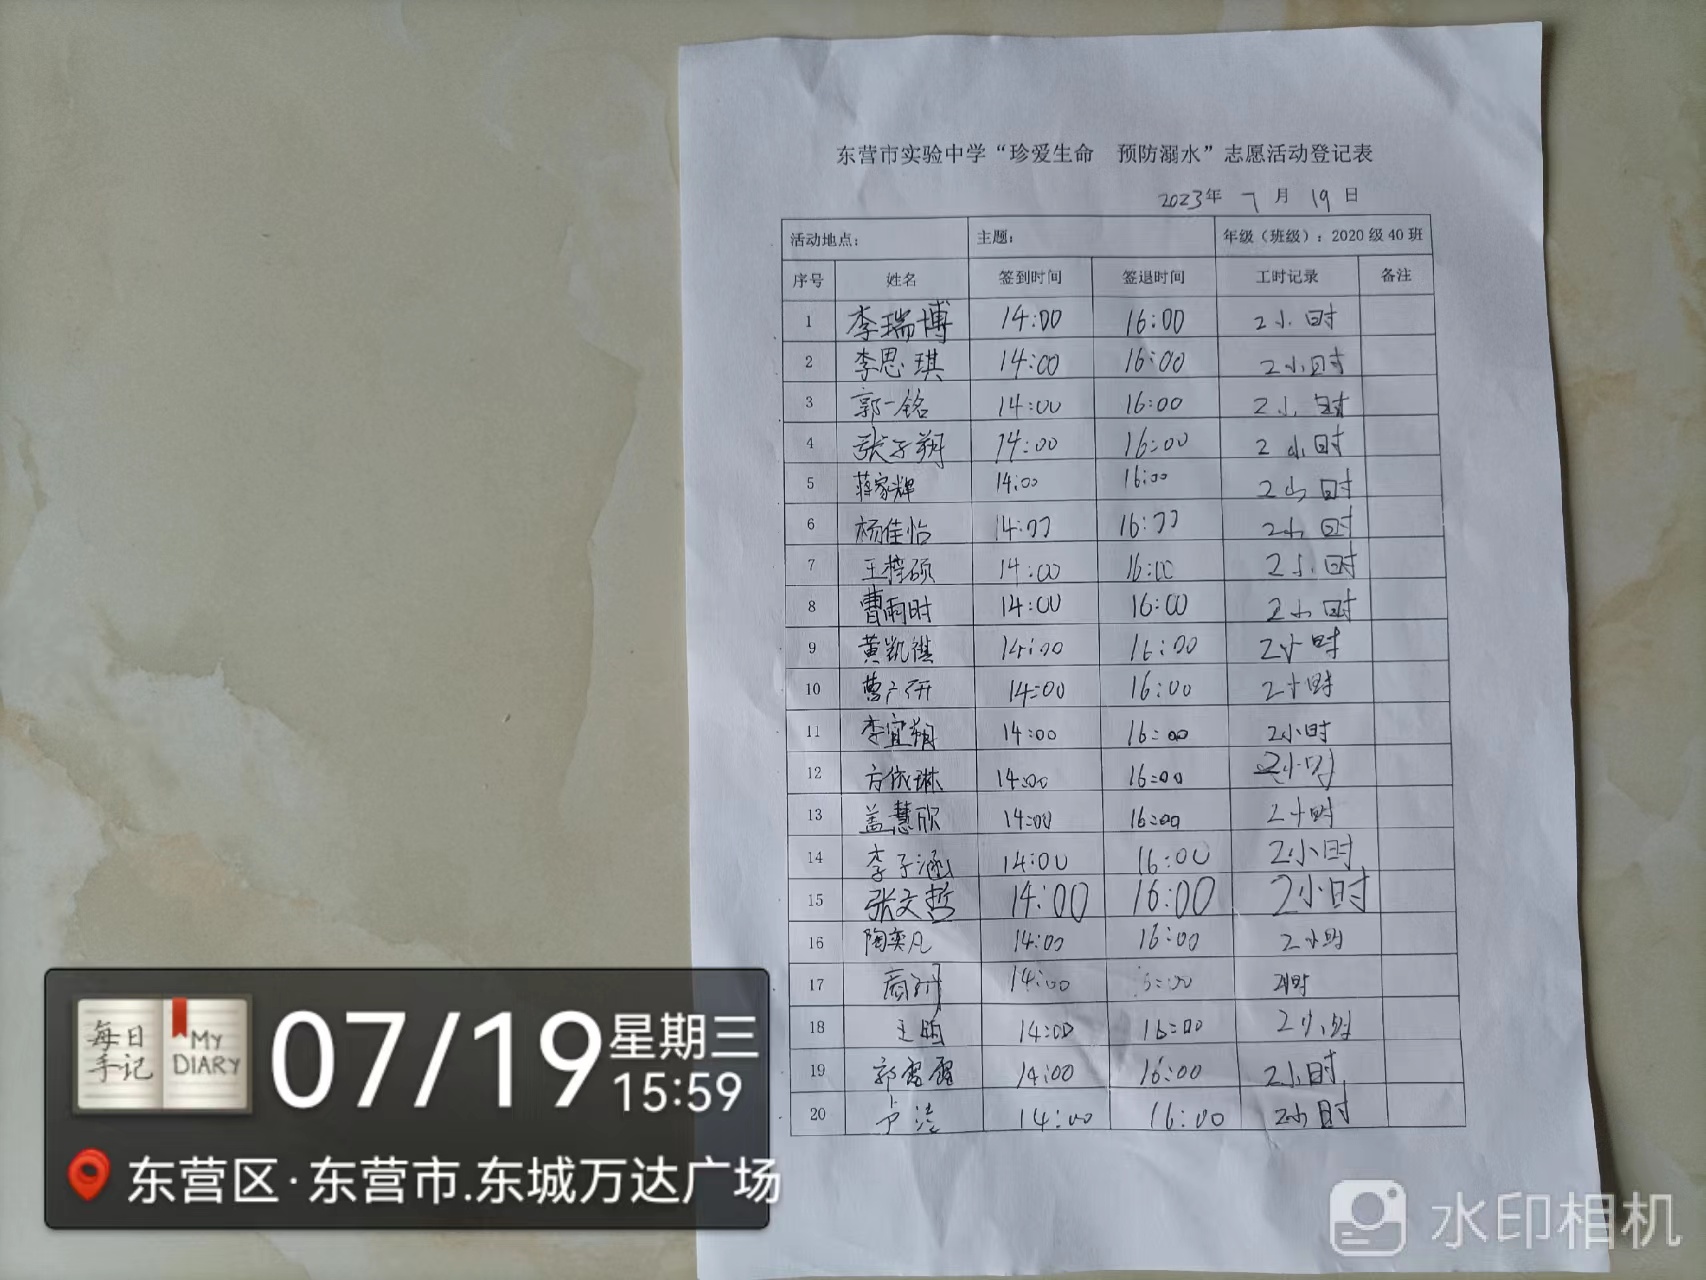 东营市实验中学“珍爱生命 预防溺水”志愿活动登记表
2023年 7 月 19 日
活动地点： 主题： 年级（班级）：2020级40班
序号 姓名 签到时间 签退时间 工时记录 备注
1 李瑞博 14:00 16:00 2小时
2 李思琪 14:00 16:00 2小时
3 郭一铭 14:00 16:00 2小时
4 张子朔 14:00 16:00 2小时
5 蒋家辉 14:00 16:00 2小时
6 杨佳怡 14:00 16:00 2小时
7 14:00 16:00 2小时
8 曹雨时 14:00 16:00 2小时
9 黄凯祺 14:00 16:00 2小时
10 14:00 16:00 2小时
11 李宜朔 14:00 16:00 2小时
12 方依琳 14:00 16:00 2小时
13 盖慧欣 14:00 16:00 2小时
14 李子涵 14:00 16:00 2小时
15 张文哲 14:00 16:00 2小时
16 陶奕凡 14:00 16:00 2小时
17 14:00 2小时
18 14:00 16:00 2小时
19 14:00 16:00 2小时
20 14:00 16:00 2小时
每日手记
MY DIARY
07/19 星期三
15:59
东营区·东营市.东城万达广场
水印相机